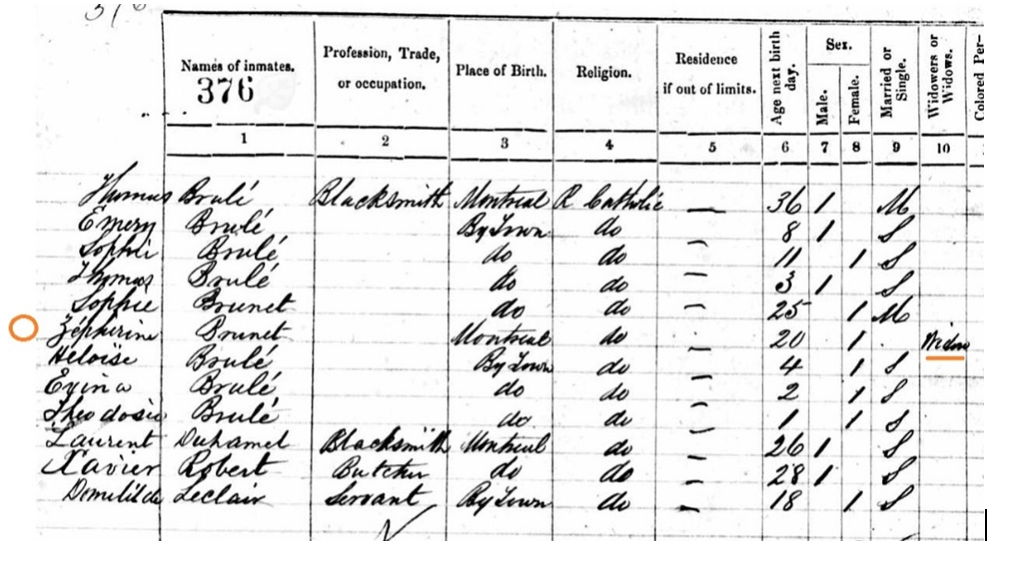 376
Names of inmates.
376
Profession, Trade,
or occupation.
Place of Birth.
Religion.
Residence
if out of limits.
Age next birth
day.
Sex.
Male.
Female.
Married or
Single.
Widowers or
Widows.
Colored Per-
1 2 3 4 5 6 7 8 9 10
Thomas Brulé Blacksmith Montreal R Catholic — 36 1 M
Emery Brulé By Town do — 8 1 S
Sophie Brulé do do — 11 1 S
Thomas Brulé do do — 3 1 S
Sophie Brunet do do — 25 1 M
Zéphirine Brunet Montreal do 20 1 Widow
Héloïse Brulé By Town do — 4 1 S
Brulé do do — 2 1 S
Theodosie Brulé do do — 1 1 S
Laurent Duhamel Blacksmith Montreal do — 26 1 S
Xavier Robert Butcher do do — 28 1 S
Leclair Servant By Town do — 18 1 S